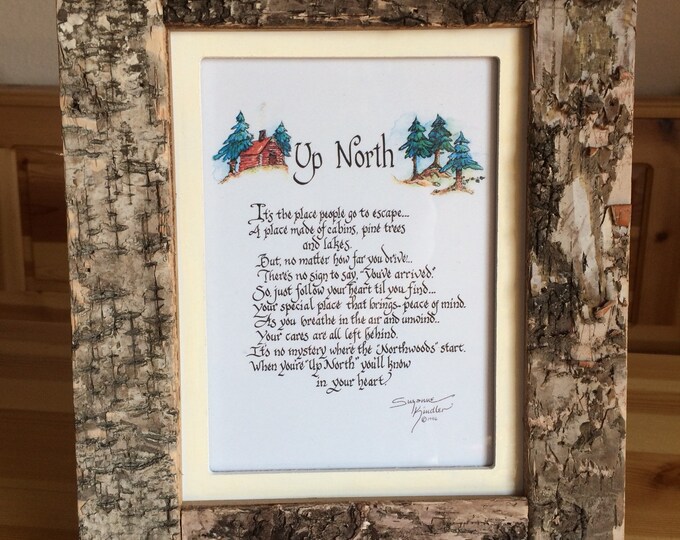 Up North
It's the place people go to escape...
A place made of cabins, pine trees
and lakes.
But, no matter how far you drive...
There's no sign to say, "You've arrived."
So, just follow your heart til you find...
Your special place that brings peace of mind.
As you breathe in the air and unwind...
Your cares are all left behind.
It's no mystery where the "Northwoods" start.
When you're "Up North" you'll know
in your heart.
Suzanne
Kindler